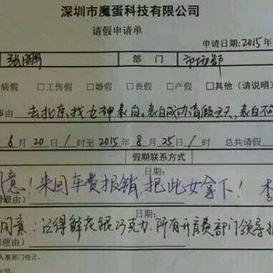 深圳市魔蛋科技有限公司
请假申请单
申请日期:2015年
部 门 市场部
病假 □工伤假 □婚假 □丧假 □产假 □其他(请说明)
事由 去北京找女神表白,表白成功请假五天,表白不
6月20日 时至2015年8月25日 时 总共请假
假期联系方式
日期:
意!来回车费报销,把此女拿下!
日期:
同意:记得鲜花跟巧克力,所有开费部门领导报
理由)